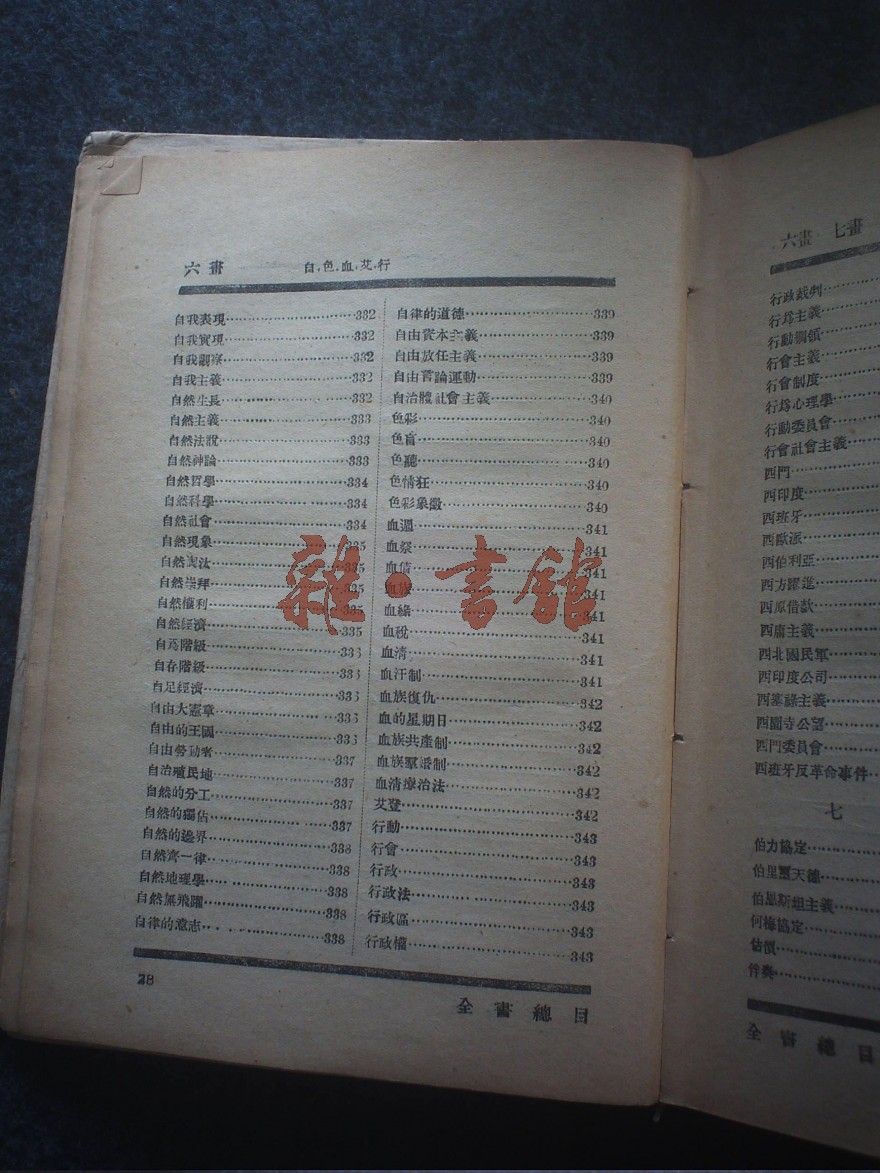 六畫 自.色.血.艾.行
自我表現 332
自我實現 332
自我觀察 332
自我主義 332
自然生長 332
自然主義 333
自然法說 333
自然神論 333
自然哲學 334
自然科學 334
自然社會 334
自然現象 335
自然淘汰 335
自然崇拜 335
自然權利 335
自然經濟 335
自爲階級 336
自存階級 336
自足經濟 336
自由大憲章 336
自由的王國 336
自由勞動者 337
自治殖民地 337
自然的分工 337
自然的獨佔 337
自然的邊界 338
自然齊一律 338
自然地理學 338
自然無飛躍 338
自律的意志 338
自律的道德 339
自由資本主義 339
自由放任主義 339
自由言論運動 339
自治體社會主義 340
色彩 340
色盲 340
色聽 340
色情狂 340
色彩象徵 340
血週 341
血祭 341
血債 341
血族 341
血緣 341
血稅 341
血清 341
血汗制 341
血族復仇 342
血的星期日 342
血族共產制 342
血族羣婚制 342
血清療治法 342
艾登 342
行動 343
行會 343
行政 343
行政法 343
行政區 343
行政權 343
28
全書總目
雜·書館
六畫 七畫
行政裁判
行爲主義
行動綱領
行會主義
行會制度
行爲心理學
行動委員會
行會社會主義
西門
西印度
西班牙
西歐派
西伯利亞
西方躍進
西原借款
西庸主義
西北國民軍
西印度公司
西塞祿主義
西園寺公望
西門委員會
西班牙反革命事件
七
伯力協定
伯里璽天德
伯恩斯坦主義
何梅協定
估價
伴奏
全書總目